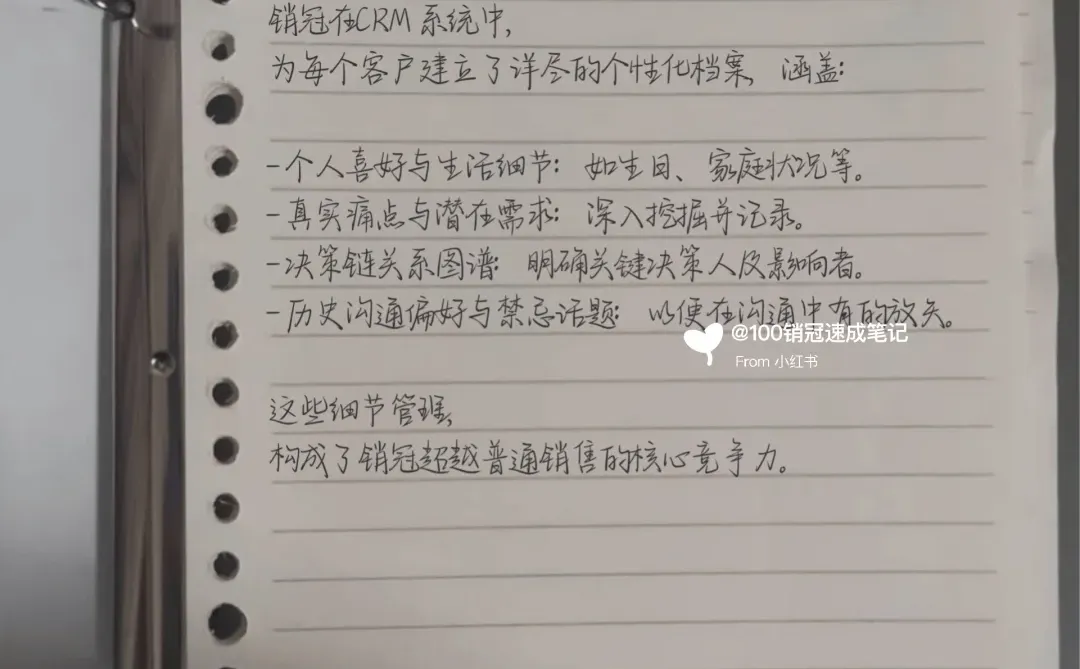 销冠在CRM系统中,
为每个客户建立了详尽的个性化档案, 涵盖:
-个人喜好与生活细节: 如生日、家庭状况等。
-真实痛点与潜在需求: 深入挖掘并记录。
-决策链关系图谱: 明确关键决策人及影响者。
-历史沟通偏好与禁忌话题: 以便在沟通中有的放矢。
@100销冠速成笔记
From 小红书
这些细节管理,
构成了销冠超越普通销售的核心竞争力。